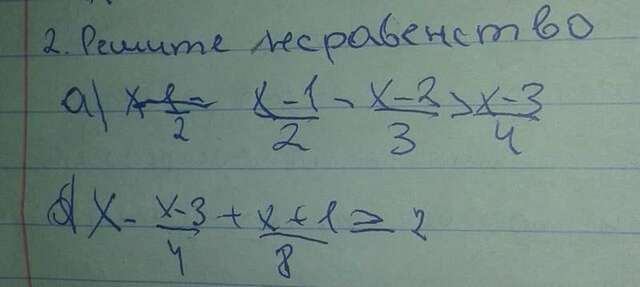 2. Решите неравенство
а) x-1/2 - x-2/3 > x-3/4
б) x - x-3/4 + x+1/8 ≥ 2